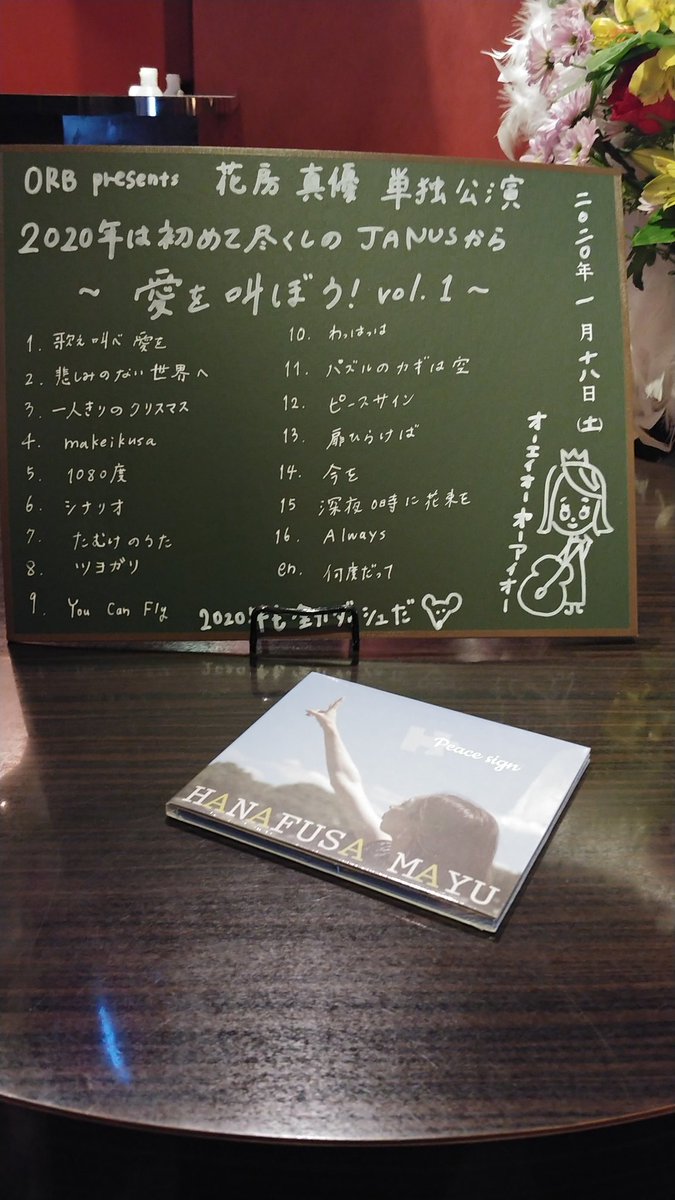 ORB presents 花房 真優 単独公演
2020年は初めて尽くしの JANUSから
～ 愛を叫ぼう! vol.1 ～
1. 歌え叫べ愛を
2. 悲しみのない世界へ
3. 一人きりのクリスマス
4. makeikusa
5. 1080度
6. シナリオ
7. たむけのうた
8. ツヨガリ
9. You Can Fly
10. わっはっは
11. パズルのカギは空
12. ピースサイン
13. 扉ひらけば
14. 今を
15 深夜0時に花束を
16. Always
en. 何度だって
2020年も全力ダッシュだ
二〇二〇年 一月十八日(土)
オーエイオーオーアイオー
Peace sign
HANAFUSA MAYU